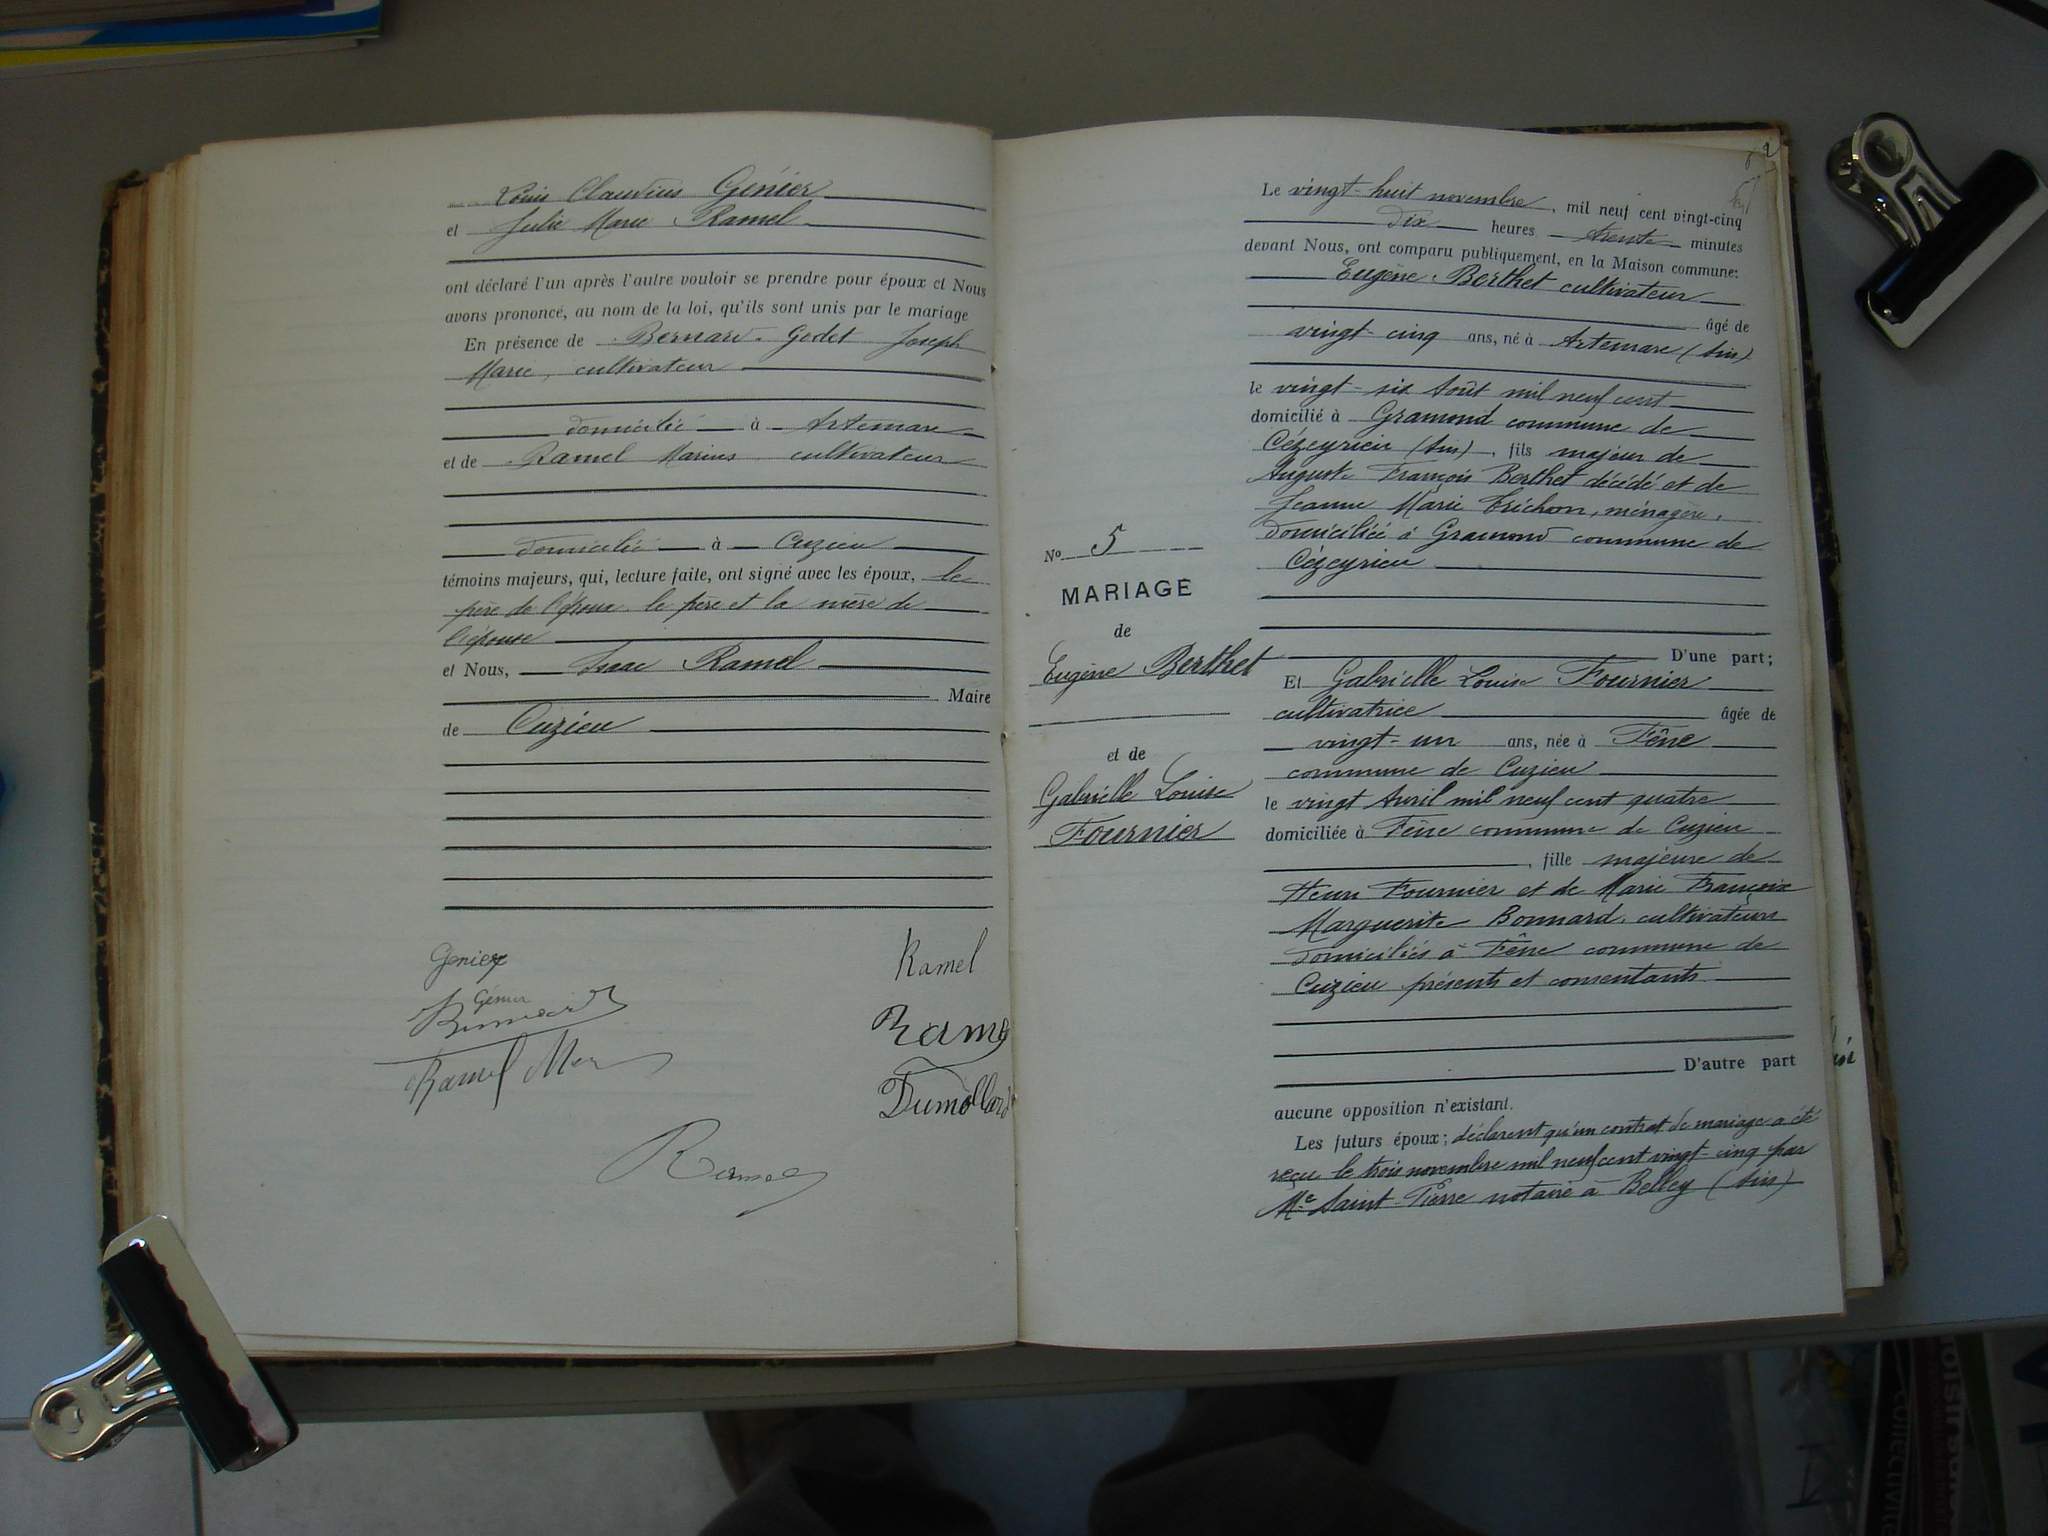 Louis Claudius Génier
et Julie Marie Ramel
ont déclaré l'un après l'autre vouloir se prendre pour époux et Nous
avons prononcé, au nom de la loi, qu'ils sont unis par le mariage
En présence de Bernard-Godet Joseph
Marie, cultivateur
domicilié à Artemare
et de Ramel Marius cultivateur
domicilié à Cuzieu
témoins majeurs, qui, lecture faite, ont signé avec les époux, le
père de l'époux, le père et la mère de
l'épouse
et Nous, Isaac Ramel
Maire
de Cuzieu
Genier
Ramel
Génier
Ramel
Ramel
Dumollard
Ramel
No 5
MARIAGE
de
Eugène Berthet
et de
Gabrielle Louise
Fournier
Le vingt-huit novembre, mil neuf cent vingt-cinq
dix heures trente minutes
devant Nous, ont comparu publiquement, en la Maison commune:
Eugène Berthet cultivateur
âgé de
vingt-cinq ans, né à Artemare (Ain)
le vingt-six Août mil neuf cent
domicilié à Gramond commune de
Cézeyrieu (Ain), fils majeur de
Auguste François Berthet décédé et de
Jeanne Marie Trichon, ménagère,
domiciliée à Gramond commune de
Cézeyrieu
D'une part;
Et Gabrielle Louise Fournier
cultivatrice âgée de
vingt-un ans, née à Fêne
commune de Cuzieu
le vingt Avril mil neuf cent quatre
domiciliée à Fêne commune de Cuzieu
, fille majeure de
Henri Fournier et de Marie Françoise
Marguerite Bonnard, cultivateurs
domiciliés à Fêne commune de
Cuzieu présents et consentants
D'autre part
aucune opposition n'existant.
Les futurs époux; déclarent qu'un contrat de mariage a été
reçu le trois novembre mil neuf cent vingt-cinq par
Me Saint-Pierre notaire à Belley (Ain)